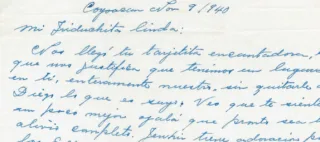 Coyoacán Nov 9/940
Mi Friduchita linda:
Nos llegó tu tarjetita encantadora,
que nos justifica que tenemos un lugar
en ti, enteramente nuestro, sin quitarle a
Diego lo que es suyo. Veo que te sientes
un poco mejor ojalá que pronto sea
alivio completo. tiene